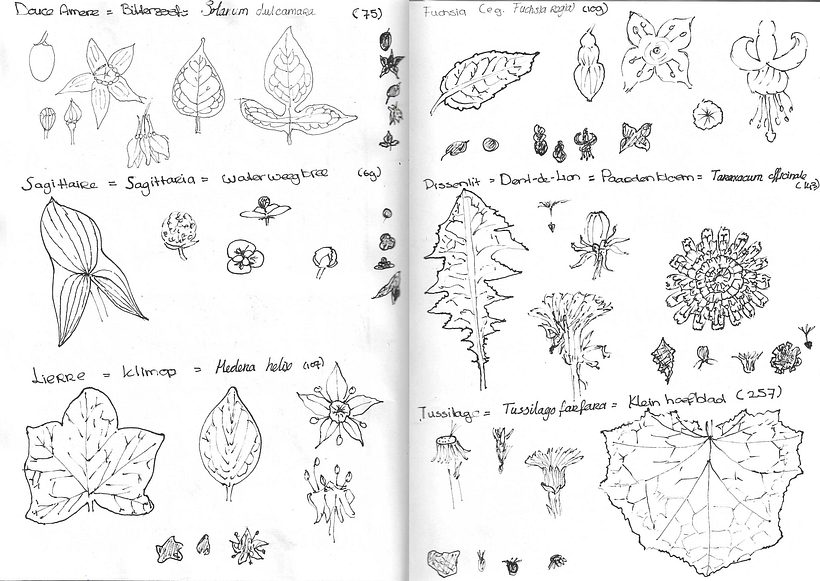 Douce Amere = Bitterzoet = Solanum dulcamara (75)
Sagittaire = Sagittaria = Waterweegbree (69)
Lierre = Klimop = Hedera helix (107)
Fuchsia (eg. Fuchsia regia) (109)
Pissenlit = Dent-de-Lion = Paardenbloem = Taraxacum officinale
(143)
Tussilage = Tussilago farfara = Klein hoefblad (257)